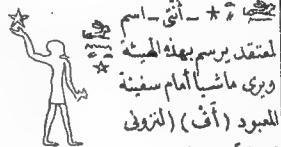 ـ أنتى ـ اسم
لمعتقد يرسم بهذه الهيئة
ويرى ماشيا أمام سفينة
المعبود (أف) (التزونى